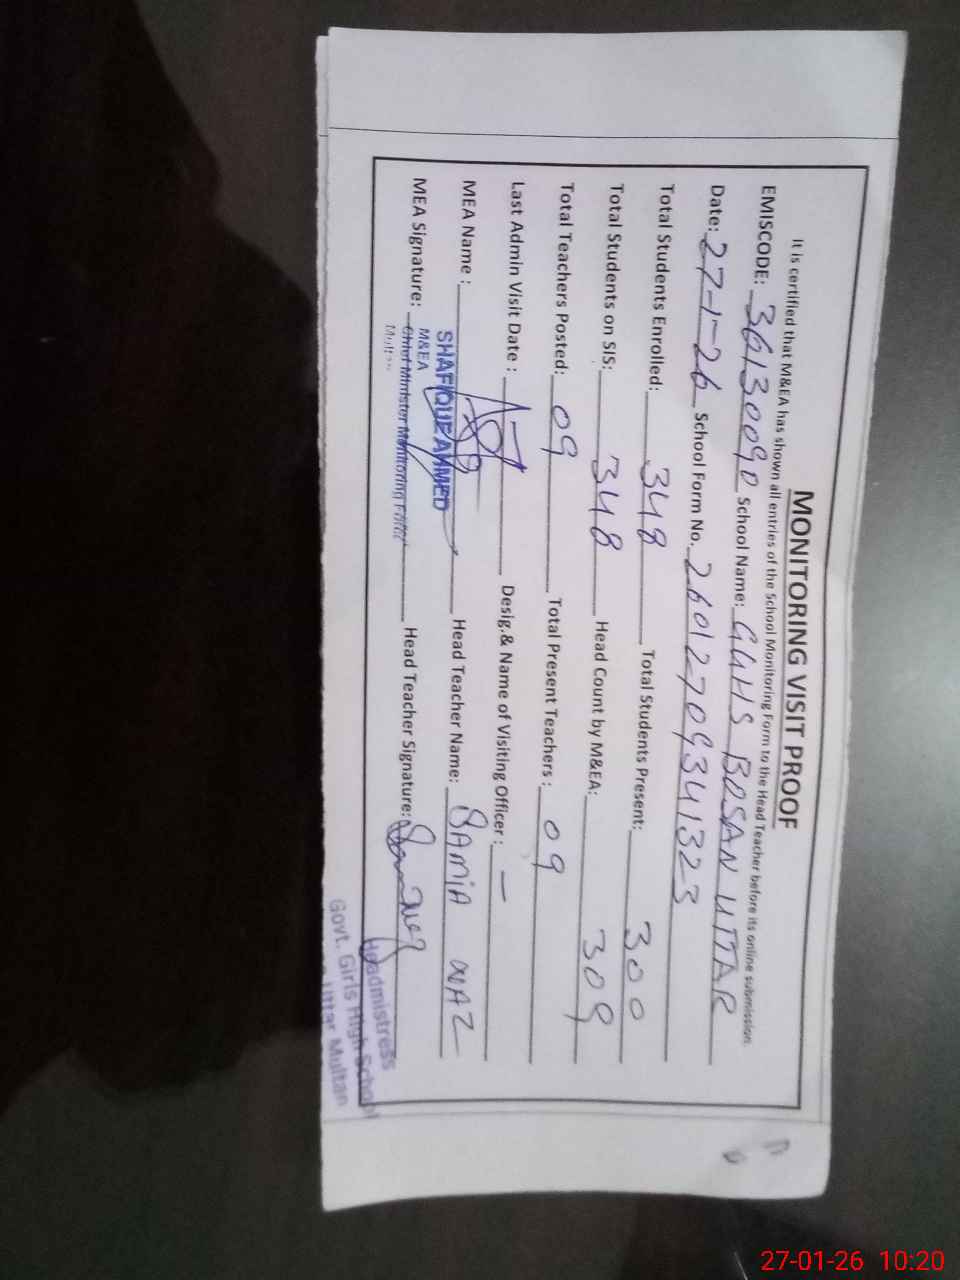 MONITORING VISIT PROOF
It is certified that M&EA has shown all entries of the School Monitoring Form to the Head Teacher before its online submission.
EMISCODE: 36130090 School Name: GGHS BOSAN UTTAR
Date: 27-1-26 School Form No. 26012709341323
Total Students Enrolled: 348 Total Students Present: 300
Total Students on SIS: 348 Head Count by M&EA: 309
Total Teachers Posted: 09 Total Present Teachers: 09
Last Admin Visit Date : Desig.& Name of Visiting Officer : —
MEA Name : Head Teacher Name: SAMIA NAZ
SHAFIQUE AHMED
M&EA
MEA Signature: Chief Minister Monitoring Force Head Teacher Signature:
Multan
Headmistress
Govt. Girls High School
Uttar Multan
27-01-26 10:20